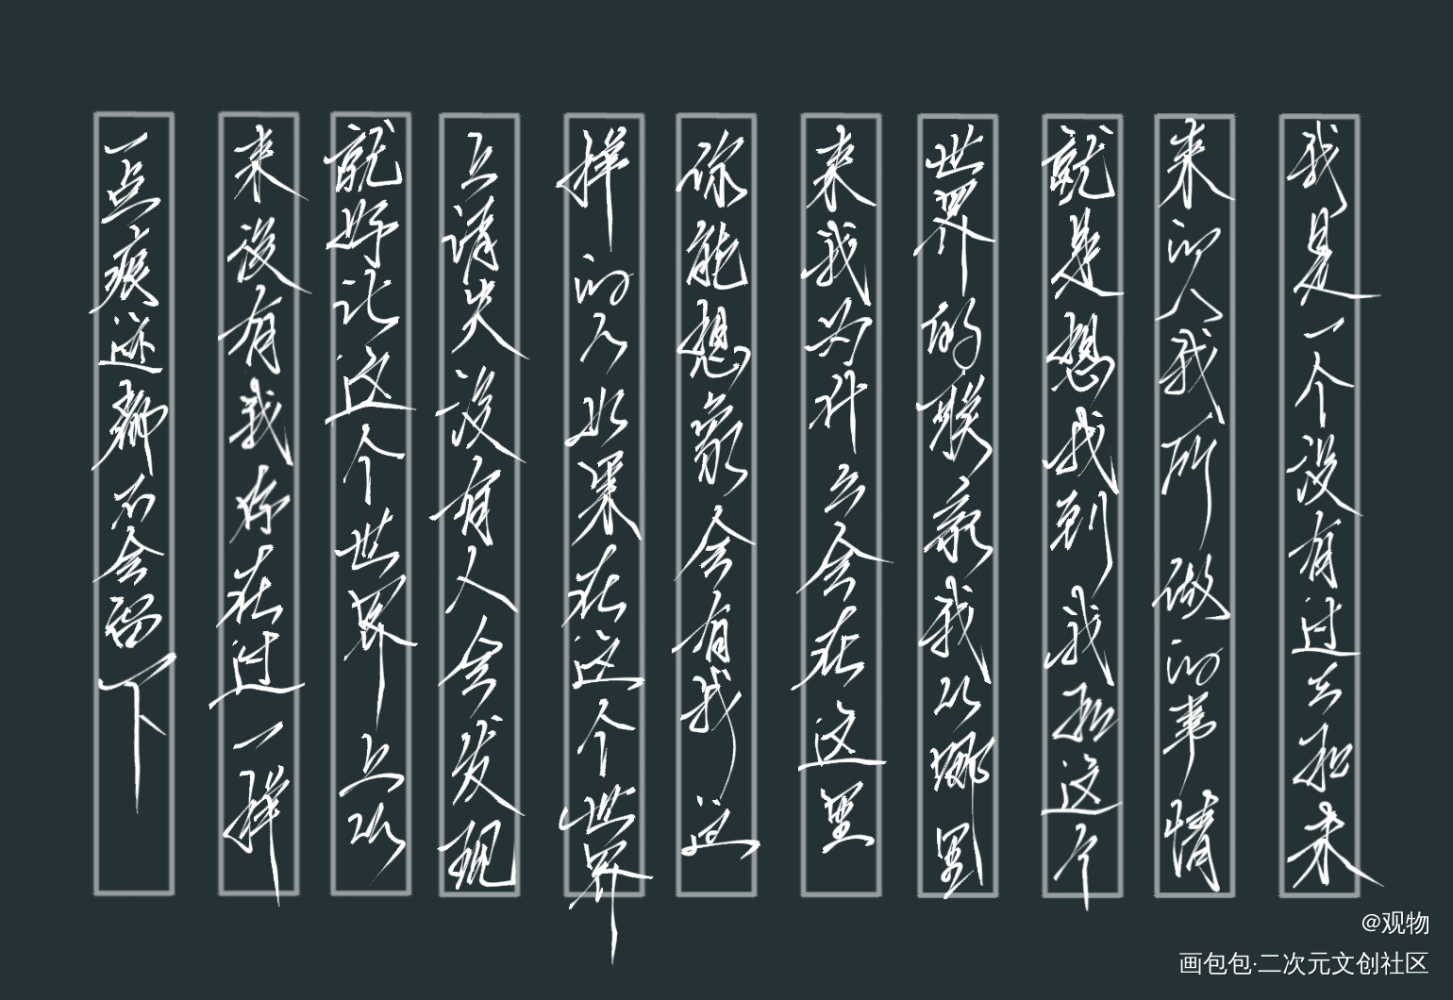 我是一个没有过去和未
来的人我所做的事情
就是想找到我和这个
世界的联系我从哪里
来我为什么会在这里
你能想象会有我这
样的人如果在这个世界
上消失没有人会发现
就好比这个世界上从
来没有我存在过一样
一点痕迹都不会留下
@观物
画包包·二次元文创社区